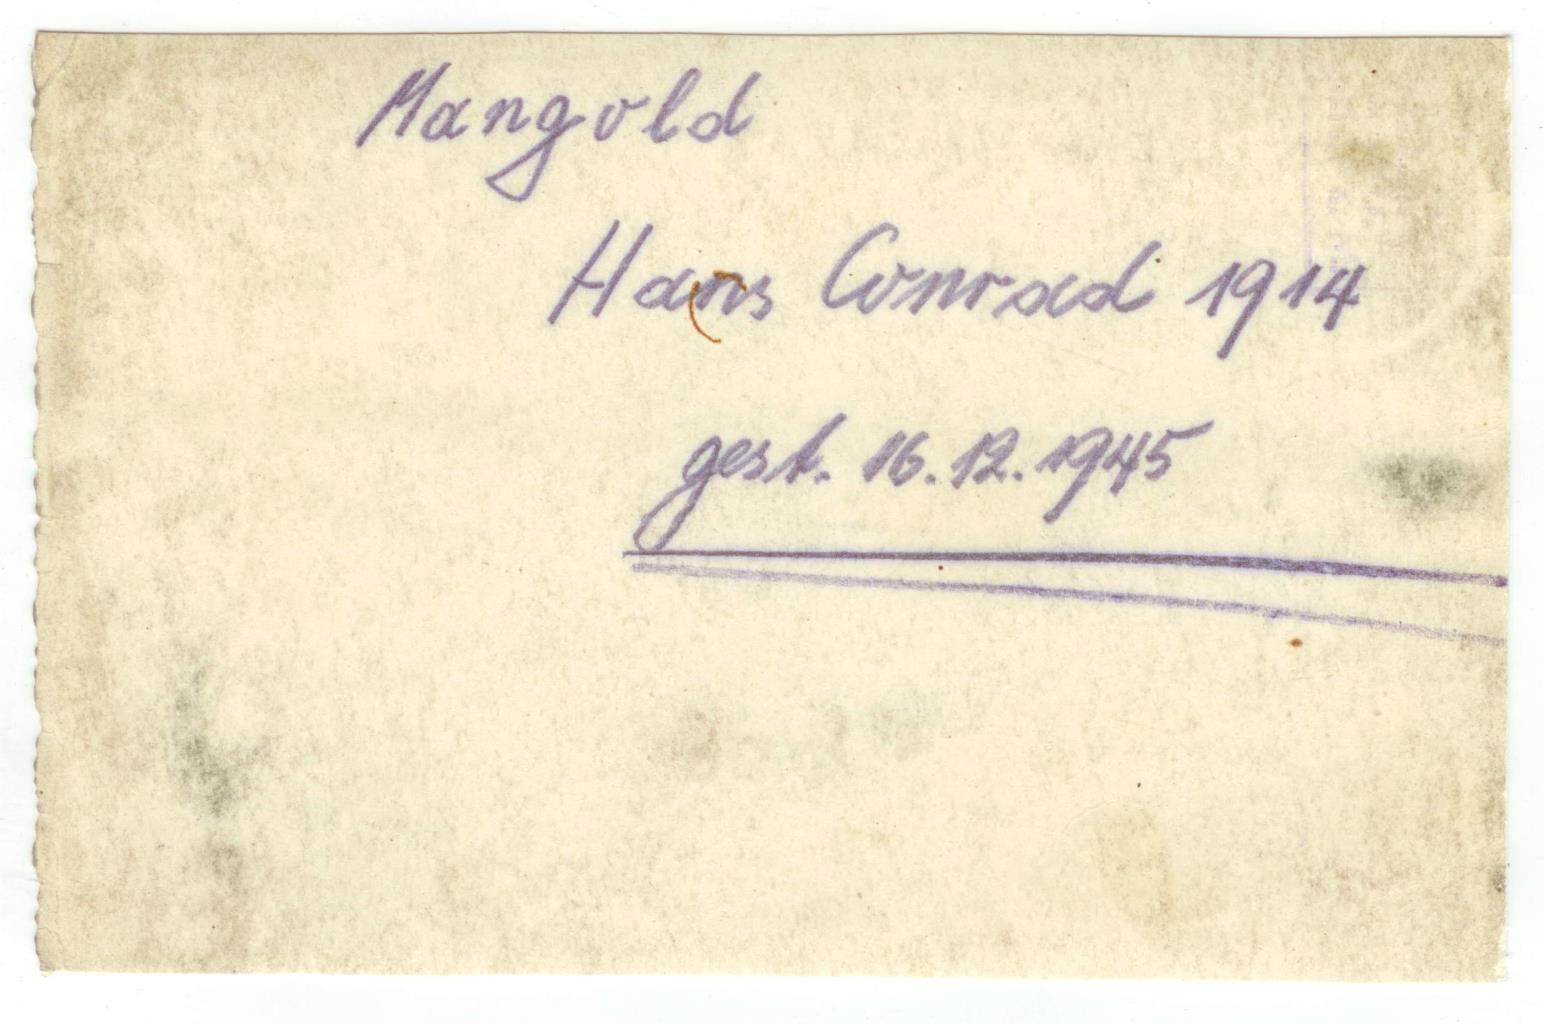 Mangold
Hans Conrad 1914
gest. 16.12.1945